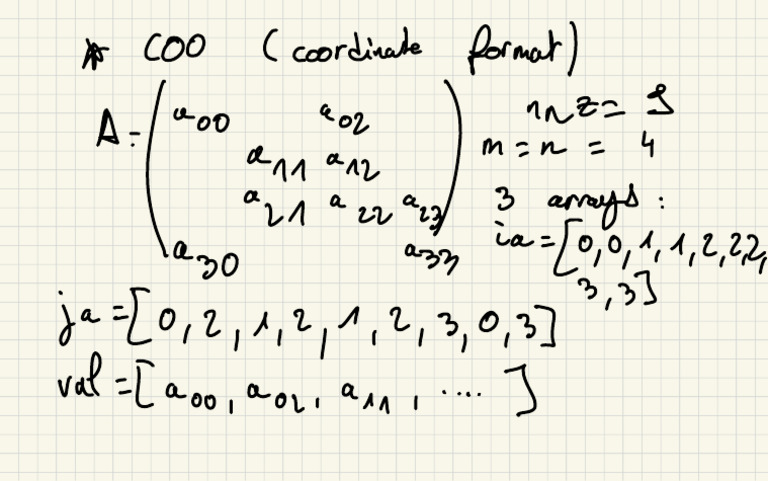 * COO (coordinate format)
A = ( a00 a02
a11 a12
a21 a22 a23
a30 a33 )
nnz = 9
m = n = 4
3 arrays :
ia = [0,0,1,1,2,2,2,
3,3]
ja = [0,2,1,2,1,2,3,0,3]
val = [a00, a02, a11, .... ]